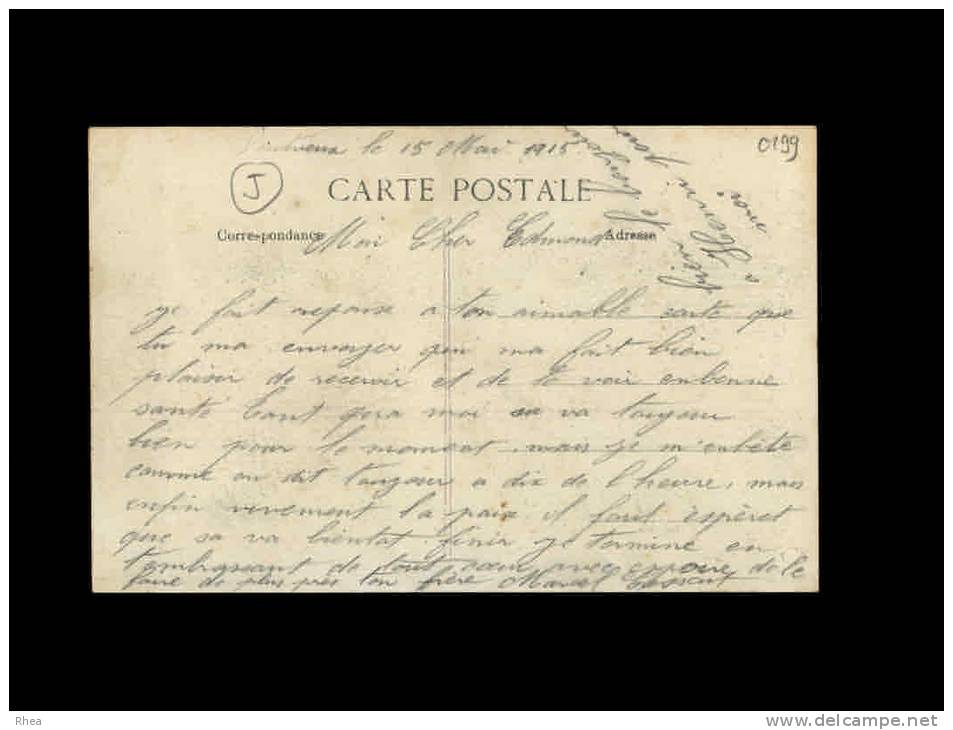 le 15 Mai 1915
0199
J
CARTE POSTALE
Correspondance
Adresse
Mon Cher Edmond
hier le
à pour
moi
je fait reponse a ton aimable carte que
tu ma envoyer qui ma fait bien
plaisir de recevoir et de te voir en bonne
santé tant qua moi sa va toujour
bien pour le moment, mais je m'enbête
comme on dit toujour a dix de l'heure, mais
enfin vivement la paix il faut espèret
que sa va bientat finir je termine en
t'embrassant de tout cœur avec espoire de le
faire de plus près ton frère Marcel
Rhea
www.delcampe.net